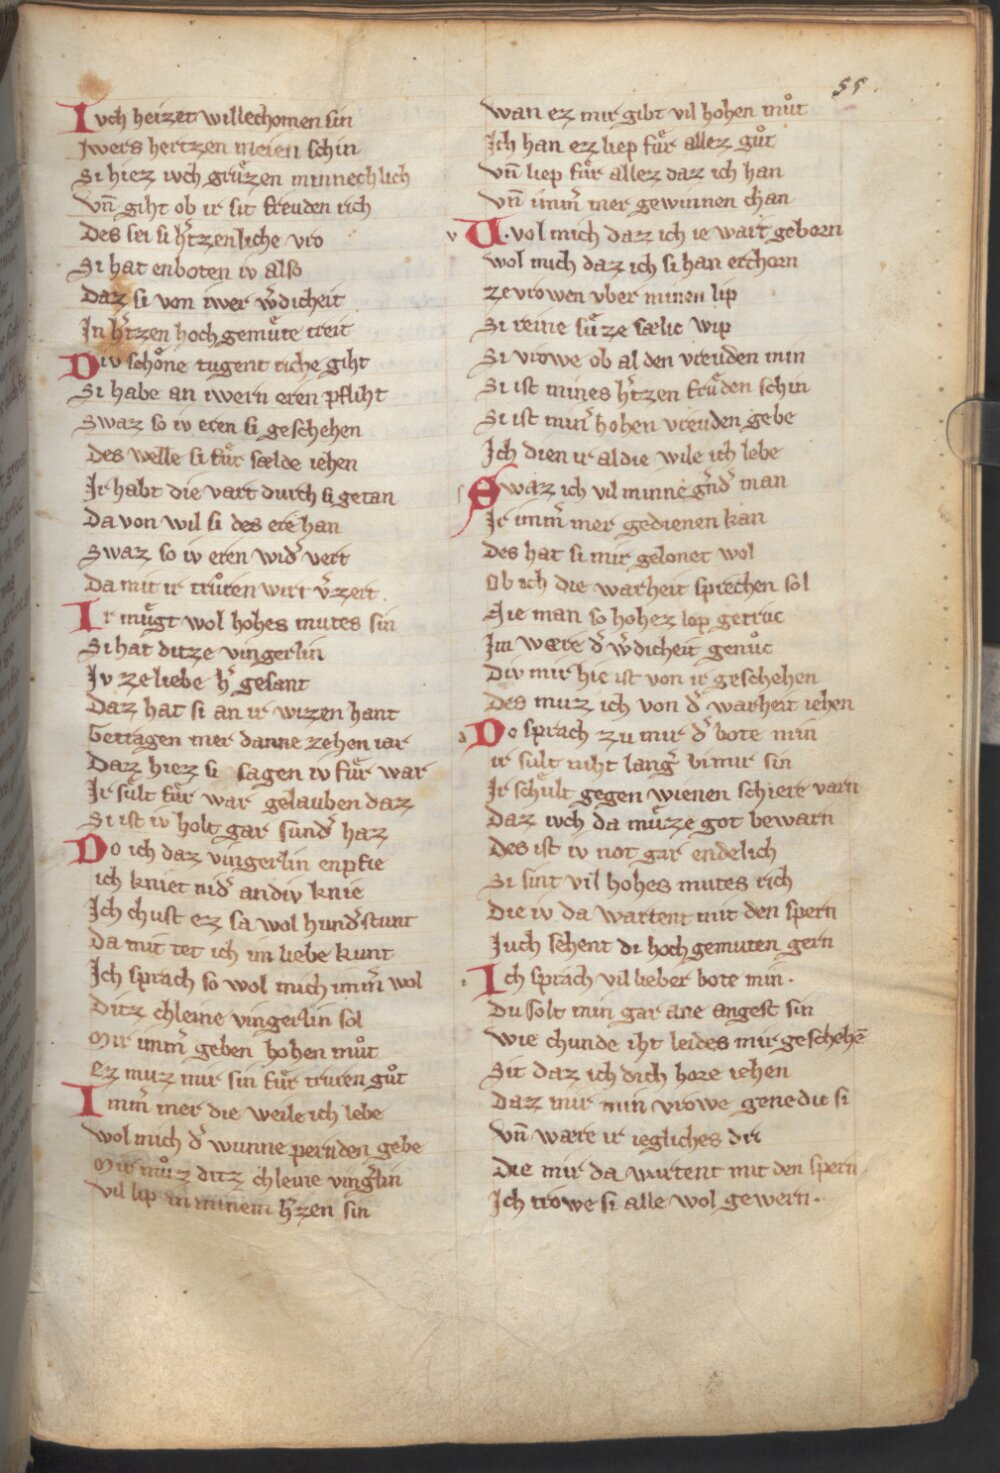 55.
Ivch heizet willechomen sin
Jwers hertzen meien schin
Si hiez iwch grůzen minnechlich
Vn̄ giht ob ir sit freuden rich
Des sei si h̓tzenliche vro
Si hat enboten iv also
Daz si von iwer w̓dicheit
In h̓tzen hoch gemůte treit
Div schöne tugent riche giht
Si habe an iwern eren pfliht
Swaz so iv eren si geschehen
Des welle si fůr sælde iehen
Ir habt die vart durch si getan
Da von wil si des ere han
Swaz so iv eren wid̓ vert
Da mit ir trůren wirt v̓zert.
Ir můgt wol hohes mutes sin
Si hat ditze vingerlin
Jv ze liebe h̓ gesant
Daz hat si an ir wizen hant
Getragen mer danne zehen iar
Daz hiez si sagen iv fůr war
Ir sůlt fůr war gelauben daz
Si ist iv holt gar sund̓ haz
Do ich daz vingerlin enpfie
ich kniet nid̓ an div knie
Ich chust ez sa wol hund̓stunt
Da mit tet ich im liebe kunt
Ich sprach so wol mich imm̓ wol
Ditz chleine vingerlin sol
Mir imm̓ geben hohen můt
Ez muz mir sin fůr truren gůt
Imm̓ mer die weile ich lebe
Wol mich d̓ wunne pernden gebe
Mir můz ditz chleine ving̓lin
Vil lip in minem h̓zen sin
Wan ez mir gibt vil hohen můt
Ich han ez liep fůr allez gůt
Vn̄ liep fůr allez daz ich han
Vn̄ imm̓ mer gewinnen chan
v W.vol mich daz ich ie wart geborn
Wol mich daz ich si han erchorn
Ze vrowen vber minen lip
Si reine sůze sælic wip
Si vrowe ob al den vreuden min
Si ist mines h̓tzen frůden schin
Si ist min̓ hohen vreuden gebe
Ich dien ir al die wile ich lebe
s Swaz ich vil minne g̓nd̓ man
Ir imm̓ mer gedienen kan
Des hat si mir gelonet wol
Ob ich die warheit sprechen sol
Nie man so hohez lop getruc
Im wære d̓ w̓dicheit genůc
Div mir hie ist von ir geschehen
Des muz ich von d̓ warheit iehen
d Do sprach zu mir d̓ bote min
ir sult niht lang̓ bi mir sin
Ir schůlt gegen wienen schiere varn
Daz iwch da můze got bewarn
Des ist iv not gar endelich
Si sint vil hohes mutes rich
Die iv da wartent mit den spern
Iuch sehent di hoch gemuten gern
i Ich sprach vil lieber bote min.
Du solt min gar ane angest sin
Wie chunde iht leides mir geschehē
Sit daz ich dich hore iehen
Daz mir min vrowe genedic si
Vn̄ wære ir iegliches dri
Die mir da wartent mit den spern
Ich trowe si alle wol gewern.